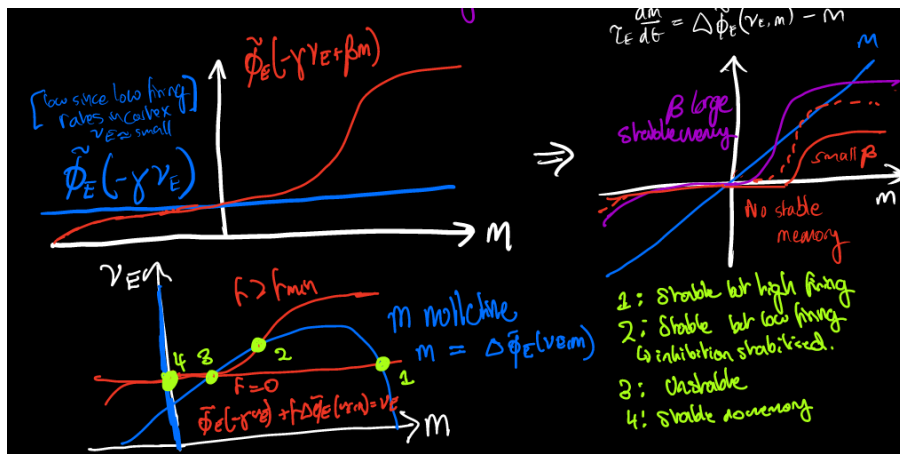 τ_E dm/dt = Δφ̃_E(ν_E, m) - m
φ̃_E(-γν_E+βm)
[low since low firing
rates in cortex
ν_E ≈ small]
φ̃_E(-γν_E)
m
⇒
m
β large
stable memory
small β
m
No stable
memory
ν_E
F > F min
m nullcline
m = Δφ̃_E(ν_E, m)
4
3
2
1
F=0
φ̃_E(-γν_E) + F Δφ̃_E(ν_E, m) = ν_E
m
1: Stable but high firing
2: Stable but low firing
↳ inhibition stabilised.
3: Unstable
4: Stable no memory